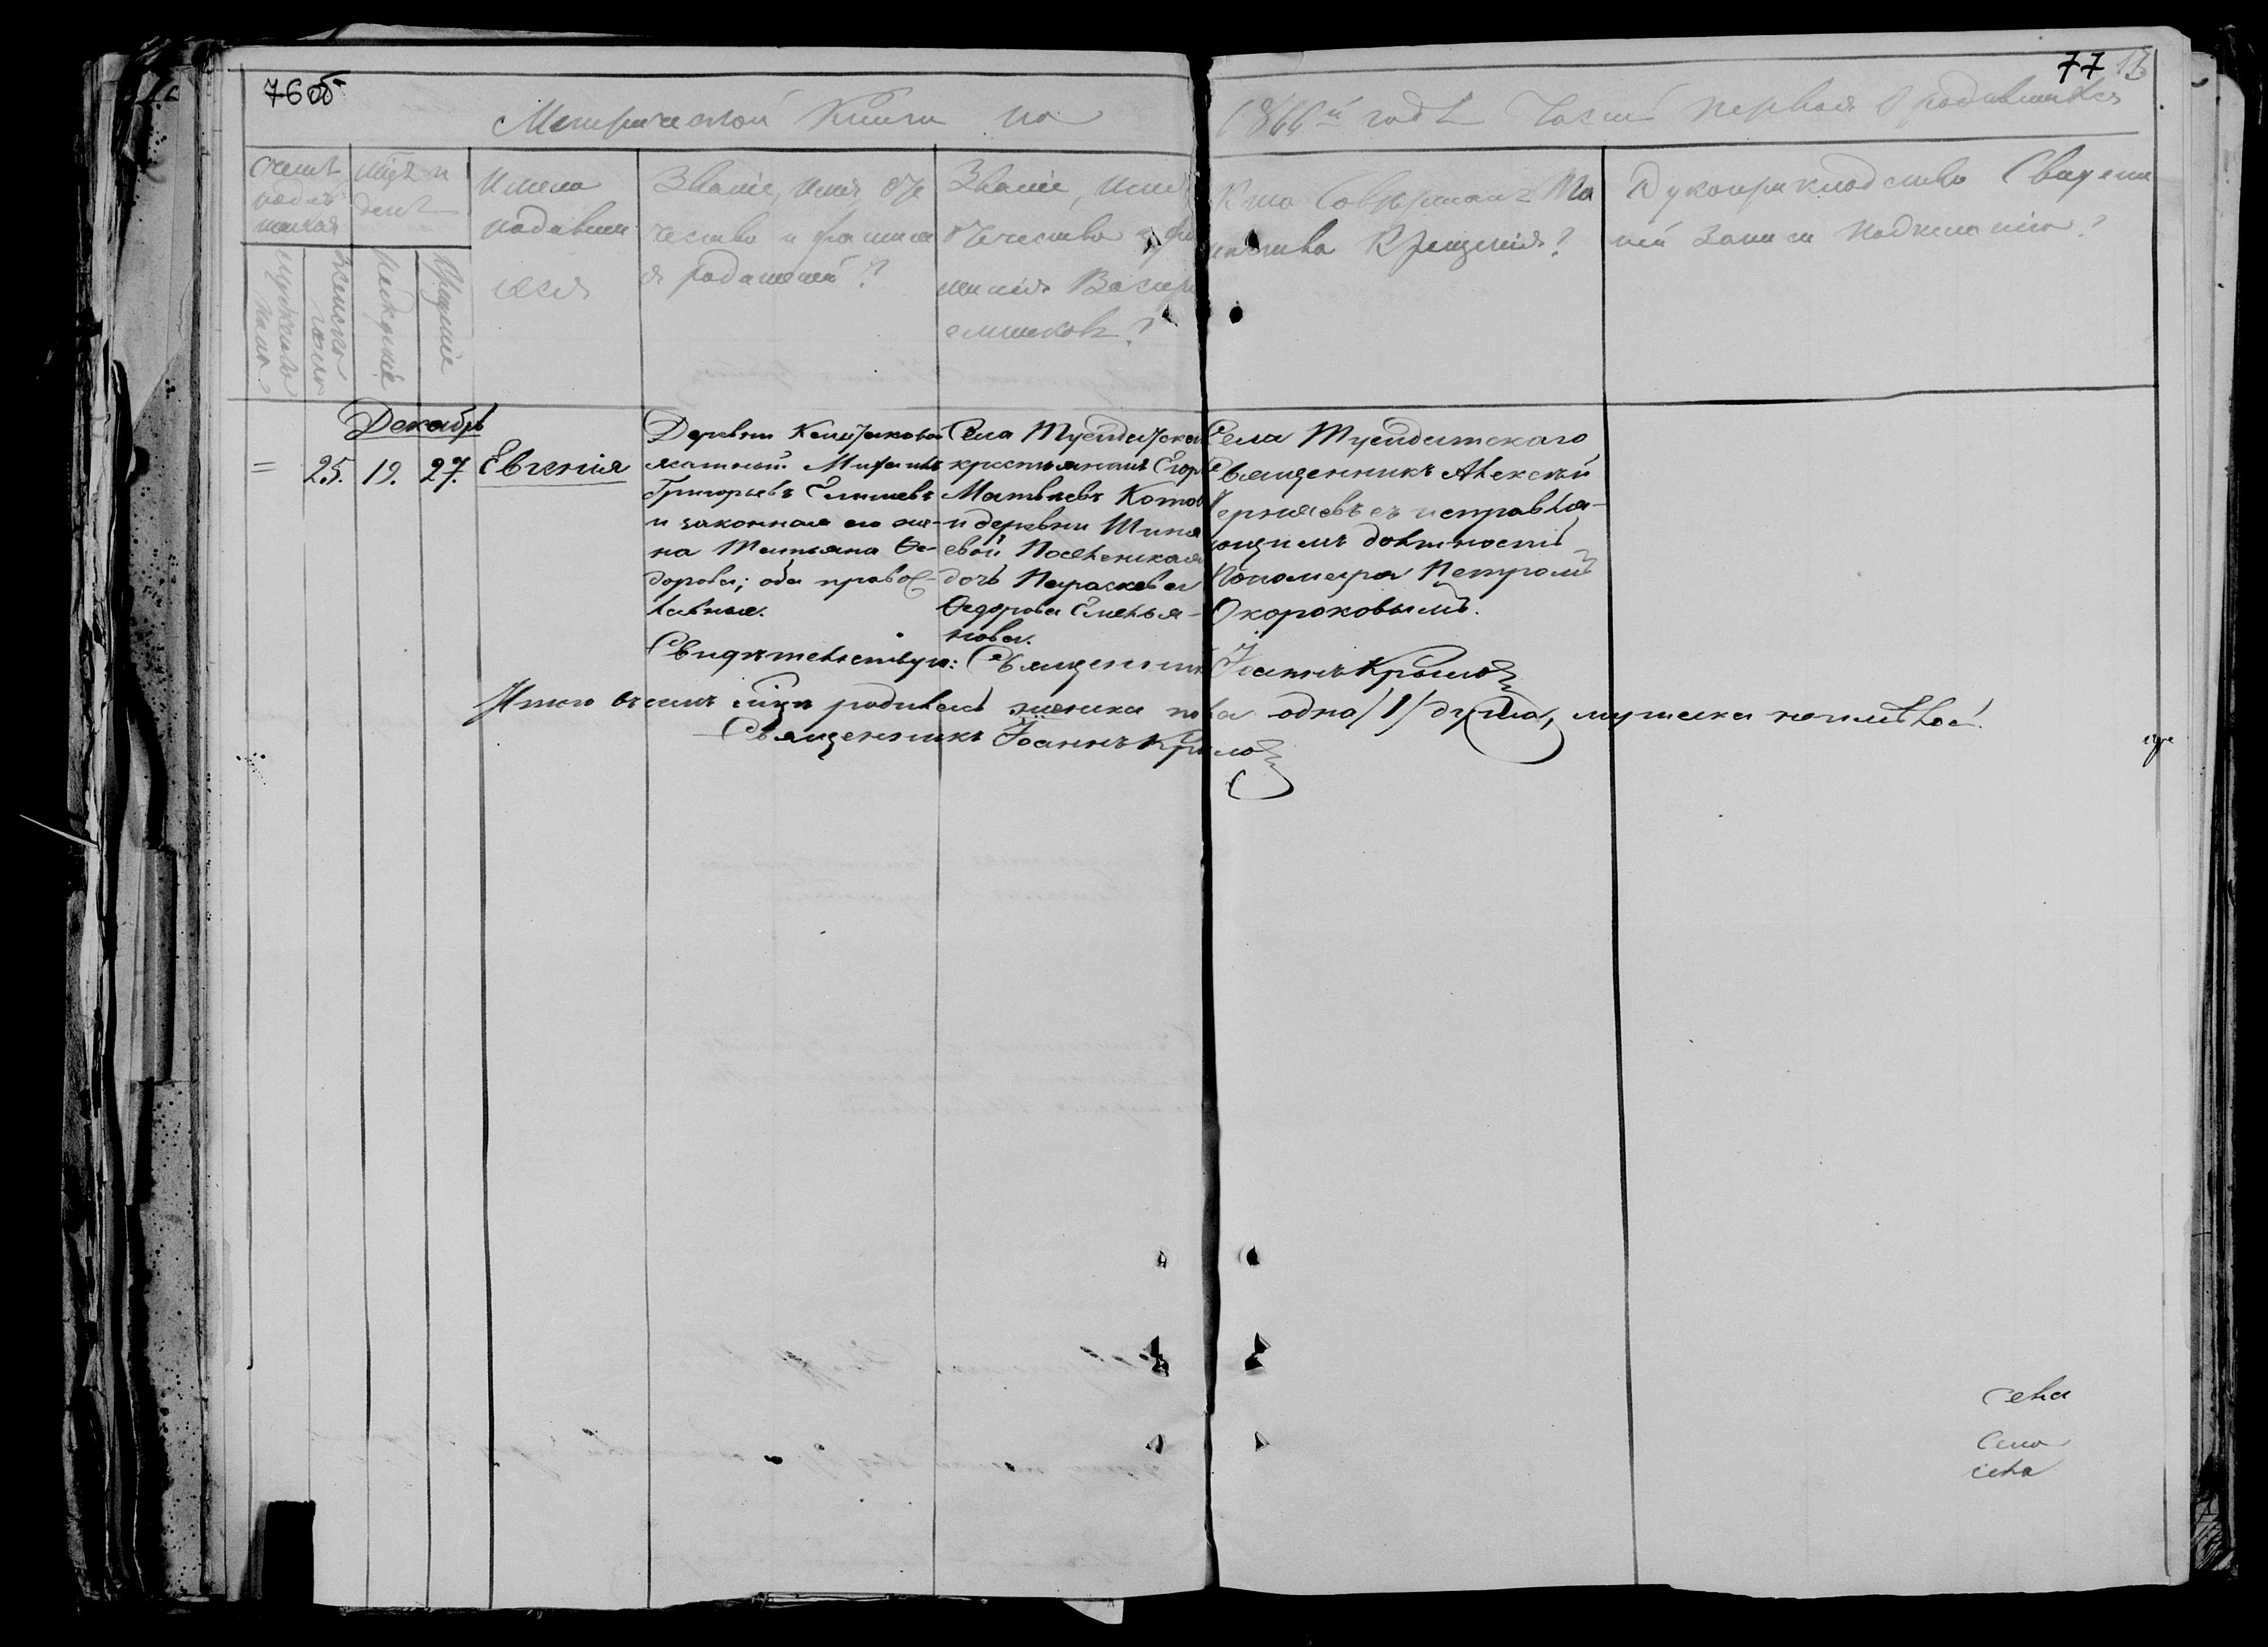 76 об
77
13
Метрической Книги на 1866й годъ Часть первая о родившихся
Счетъ родившихся
мѣсяцъ и день
Имена родившихся
Званіе, имя, отчество и фамилія родителей?
Званіе, имя, отчество и фамилія Воспріемниковъ?
Кто Совершалъ Таинство Крещенія?
Рукоприкладство Свидетелей Записи по желанію?
Мужеска пола
Женска пола
Рожденіе
Крещеніе
Декабрь
= 25. 19. 27. Евгенія
Деревни
ясашный
Григорьевъ
и законная его же-
на Татьяна Ѳе-
дорова; оба правос-
лавные.
Села
крестьянинъ Егоръ
Матвѣевъ Котов
и деревни
дочь Параскева
Ѳедорова Емелья-
нова.
Села Туендатскаго
Священникъ Алексѣй
съ исправля-
ющимъ должность
Пономаря Петромъ
Окороковымъ.
Свидѣтельствую: Священникъ Іоаннъ Крылов
Итого въ семъ мѣсяцѣ родилась женска пола одна /1/ душа, мужеска не имѣлось.
Священникъ Іоаннъ Крылов
села
села
села